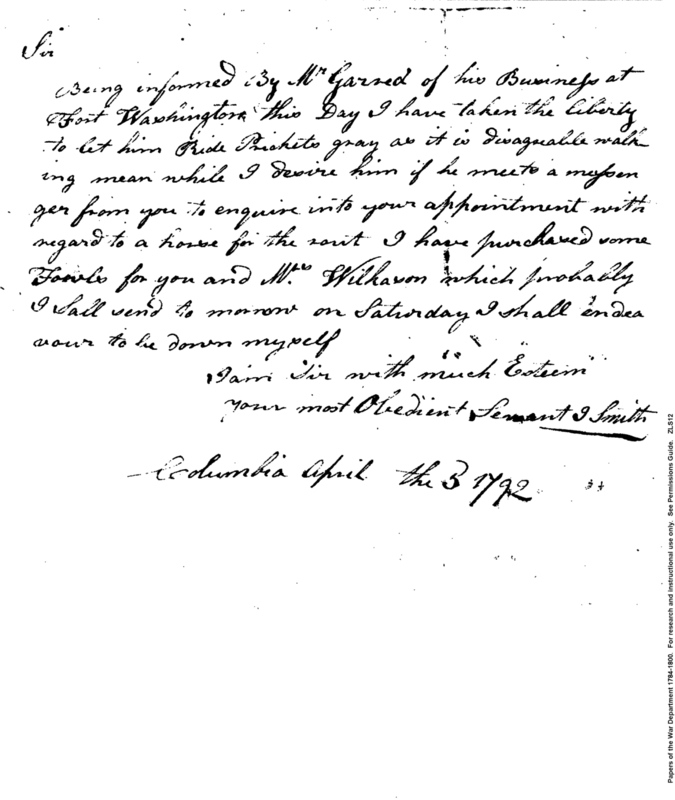 Sir
Being informed By Mr Garred of his Business at
Fort Washington this Day I have taken the liberty
to let him Ride Prickets gray as it is disagueable walk
ing mean while I desire him if he meets a messen
ger from you to enquire into your appointment with
regard to a horse for the rout I have purchased some
Fowls for you and Mrs Wilkason which probably
I Sall send to morrow on Saturday I shall endea
vour to be down myself
I am Sir with much Esteem
your most Obedient Servant J Smith
Columbia April the 3 1792
Papers of the War Department 1784-1800. For research and instructional use only. See Permissions Guide. ZLS12